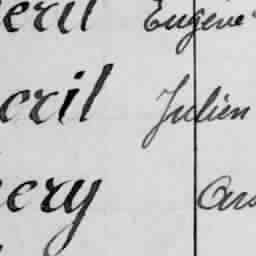 eril Eugène
cril Julien
ery Ars